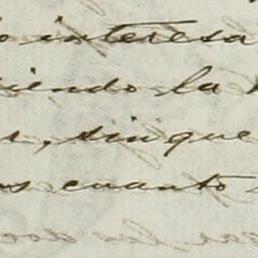 o interesa
iendo la
s, sin que
os cuanto